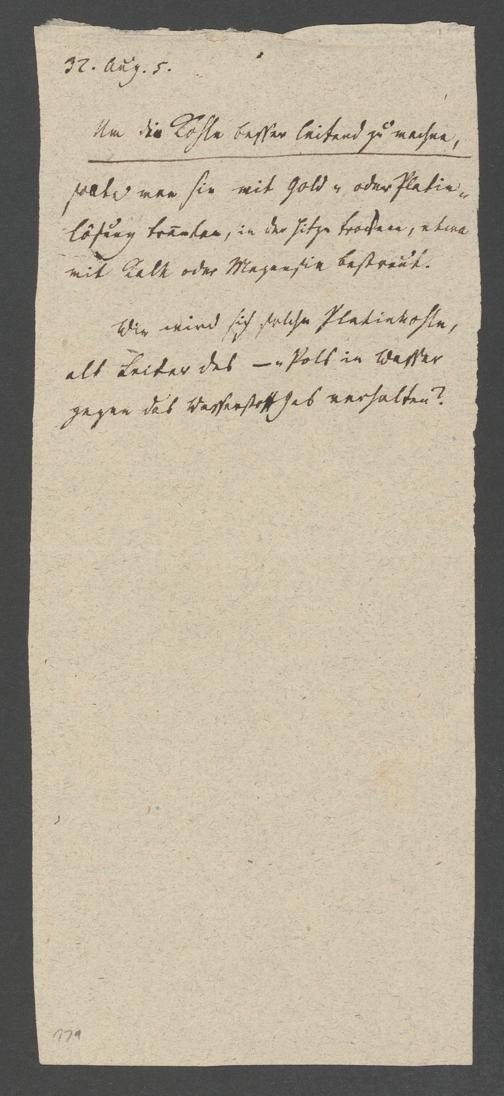 32. Aug. 5.
Um die Kohle besser leitend zu machen,
sollte man sie mit Gold- oder Platin-
lösung tränken, in der Hitze trocknen, etwa
mit Kalk oder Magnesia bestreut.
Wie wird sich solche Platinkohle,
als Leiter des —-Pols in Wasser
gegen das Wasserstoffgas verhalten?
179